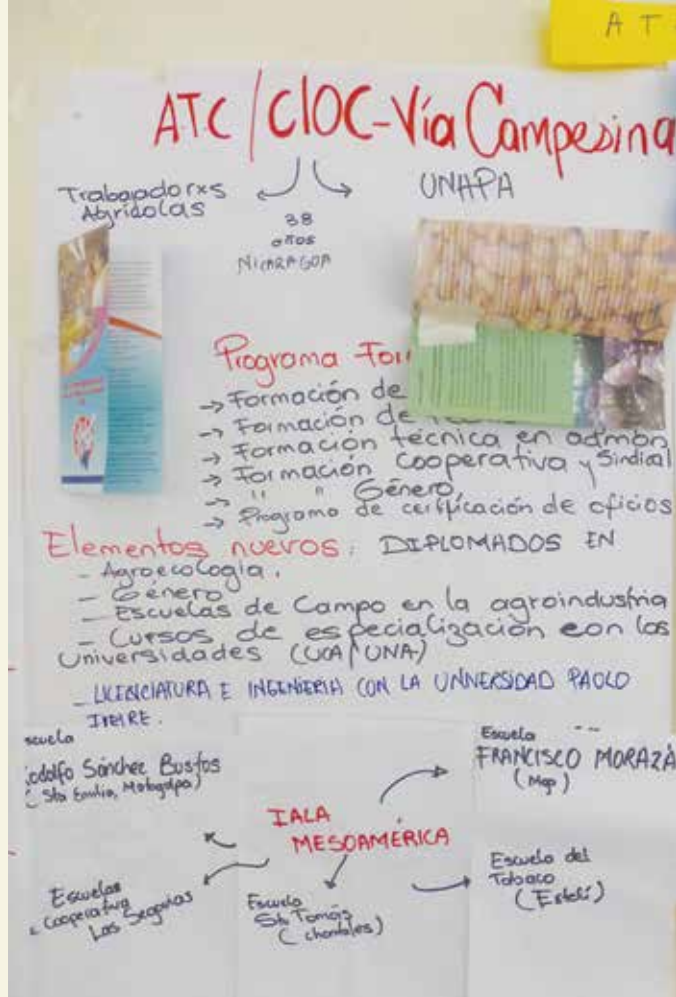 A T
ATC/CIOC-Vía Campesina
Trabajadorxs
Agrídolas
UNAPA
38
años
NICARAGUA
Programa For
→ Formación de
→ Formación de
→ Formación técnica en admón
→ Formación Cooperativa y Sindical
→ " " Género,
→ Programa de certificación de oficios
Elementos nuevos: DIPLOMADOS EN
- Agroecología.
- Género
- Escuelas de Campo en la agroindustria
- Cursos de especialización con las
Universidades (UCA/UNA)
- LICENCIATURA E INGENIERIA CON LA UNIVERSIDAD PAOLO
FREIRE.
scuela
odolfo Sánchez Bustos
(Sta Emilia, Matagalpa)
Escuela
FRANCISCO MORAZÁ
(Mga)
IALA
MESOAMÉRICA
Escuelas
Cooperativa
Las Segovias
Escuela
Sto Tomás
(chontales)
Escuela del
Tabaco
(Estelí)